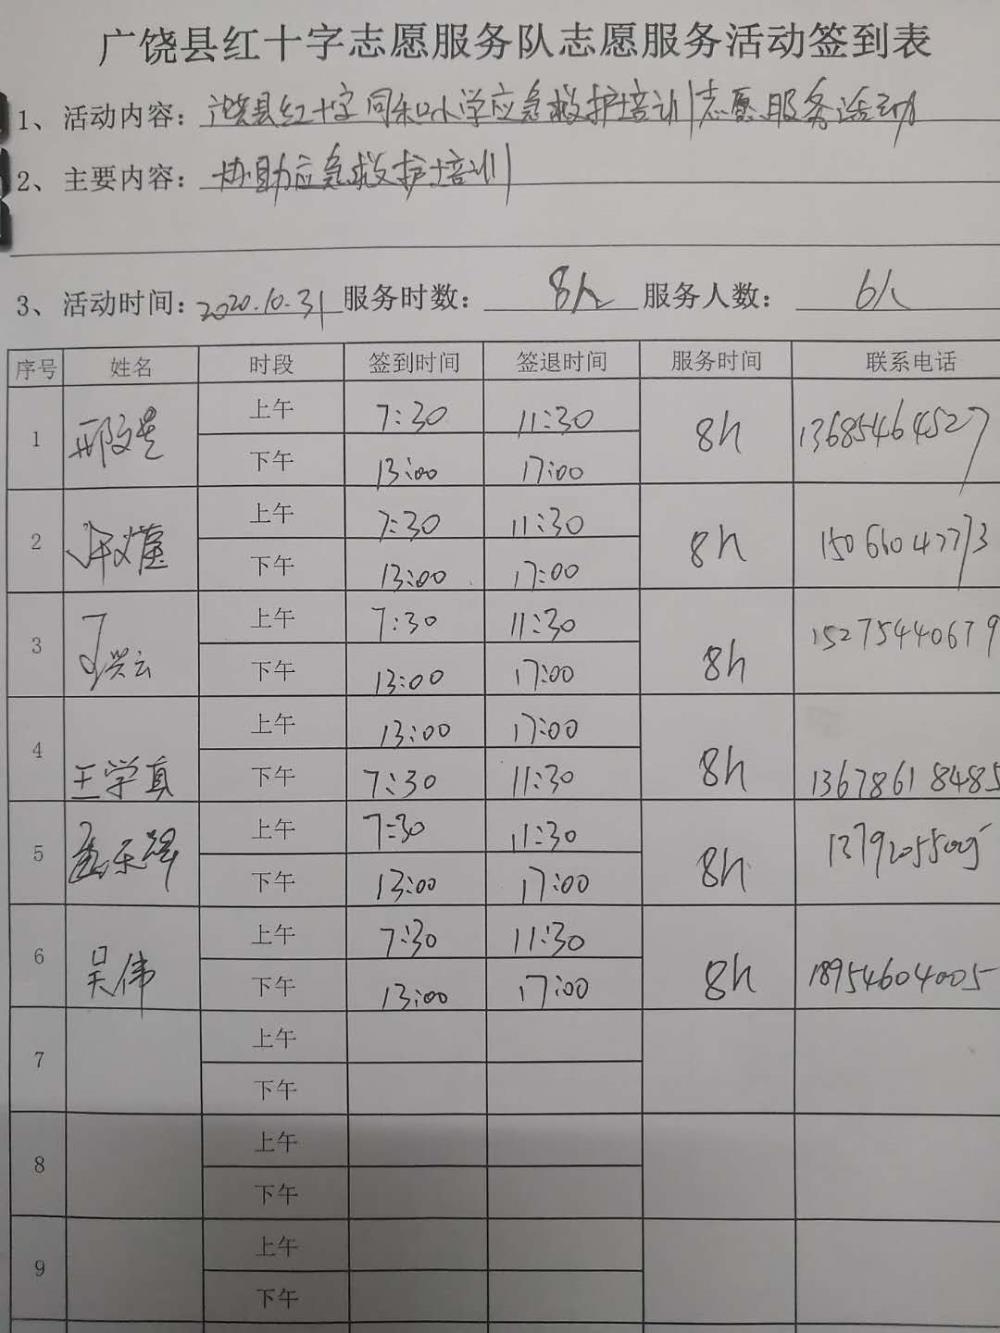 广饶县红十字志愿服务队志愿服务活动签到表
1、活动内容：广饶县红十字同和小学应急救护培训志愿服务活动
2、主要内容：协助应急救护培训
3、活动时间：2020.10.31 服务时数：8h 服务人数：6人
序号 姓名 时段 签到时间 签退时间 服务时间 联系电话
1 上午 7:30 11:30 8h 13685464527
下午 13:00 17:00
2 上午 7:30 11:30 8h
下午 13:00 17:00
3 上午 7:30 11:30 8h 15275440679
下午 13:00 17:00
4 王学真 上午 13:00 17:00 8h 13678618485
下午 7:30 11:30
5 上午 7:30 11:30 8h
下午 13:00 17:00
6 吴伟 上午 7:30 11:30 8h 18954604005
下午 13:00 17:00
7 上午
下午
8 上午
下午
9 上午
下午